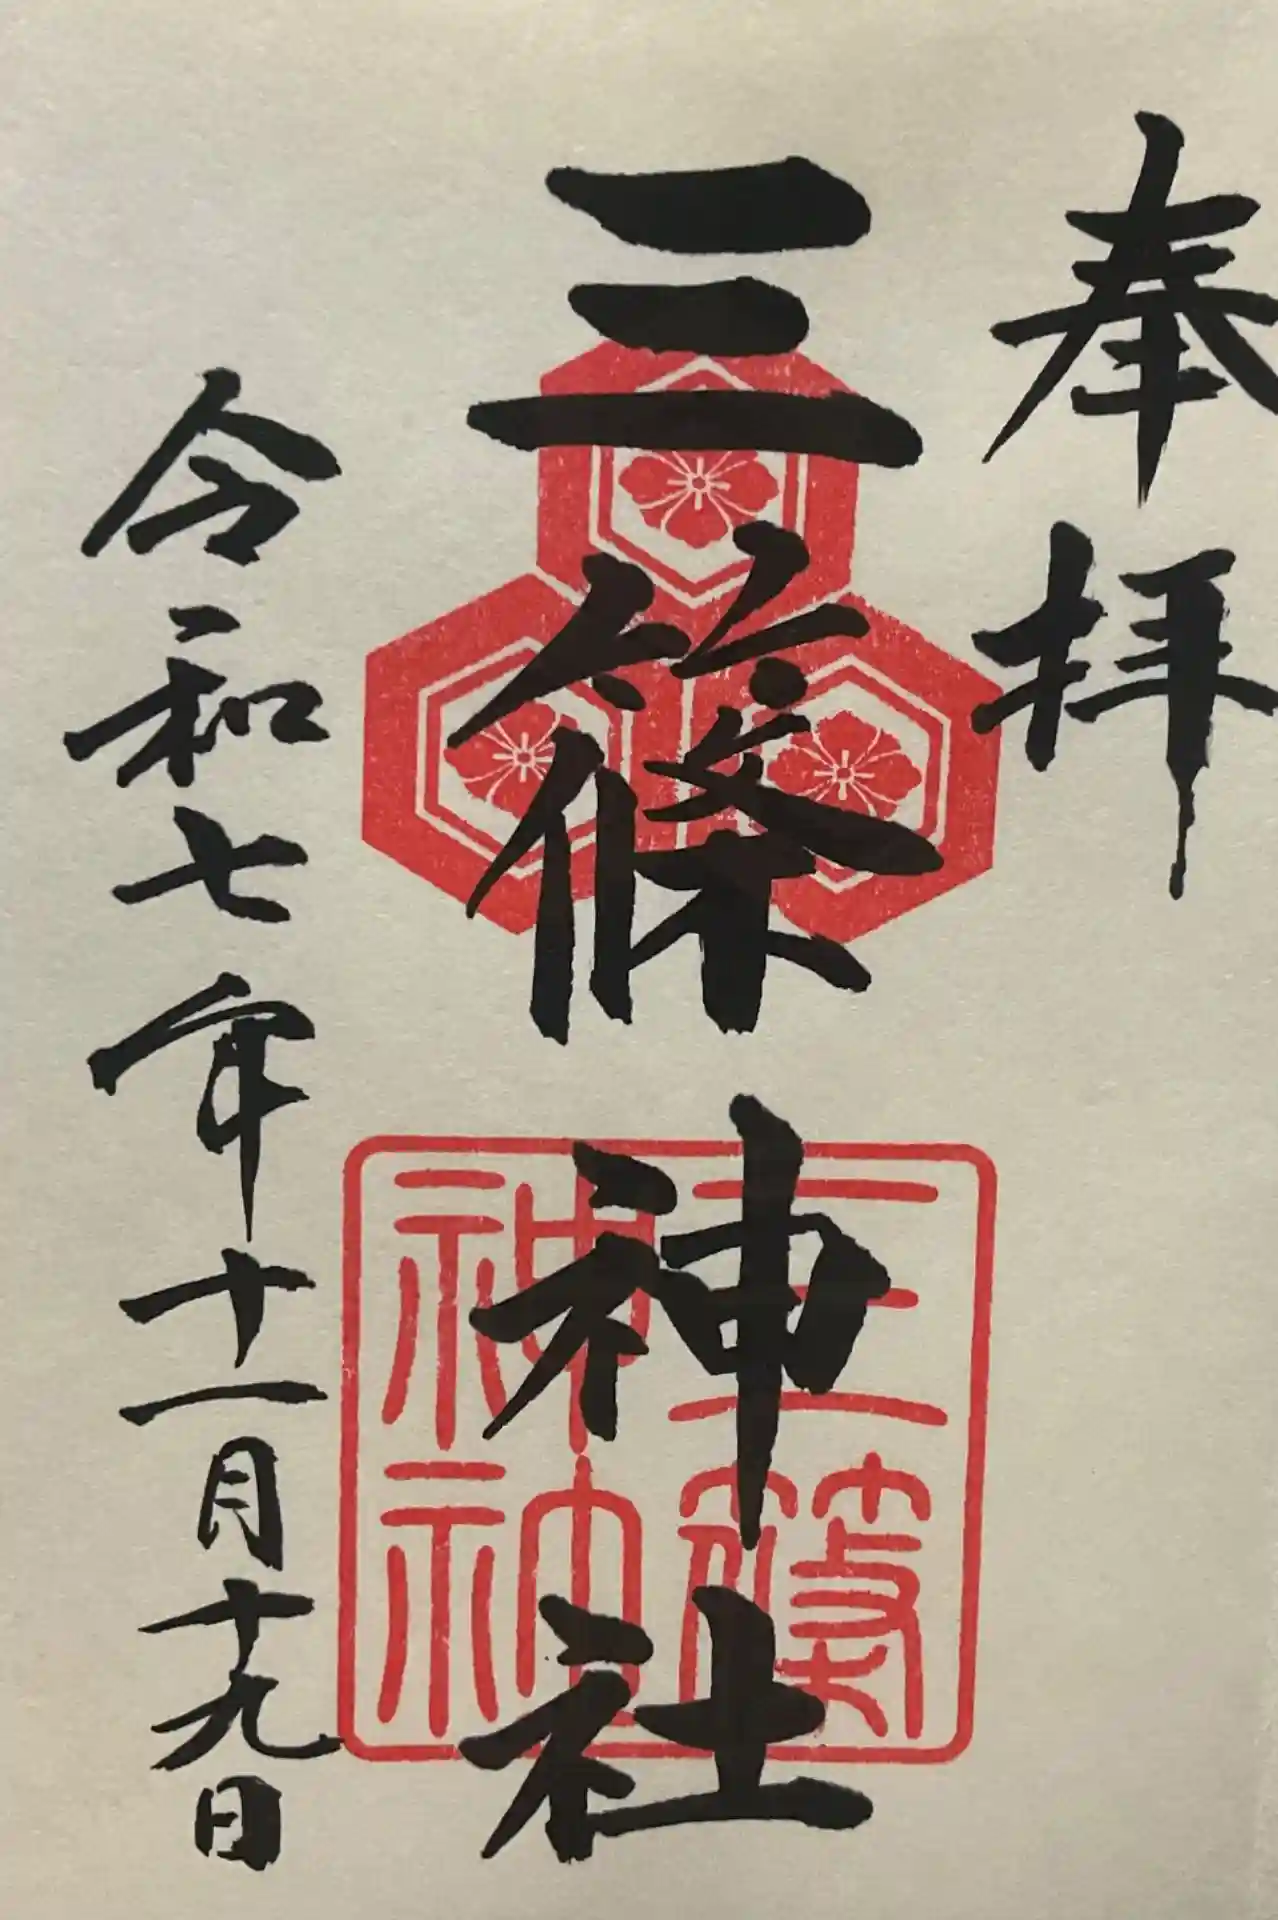 奉拝
三篠神社
令和七年十一月十九日
三篠